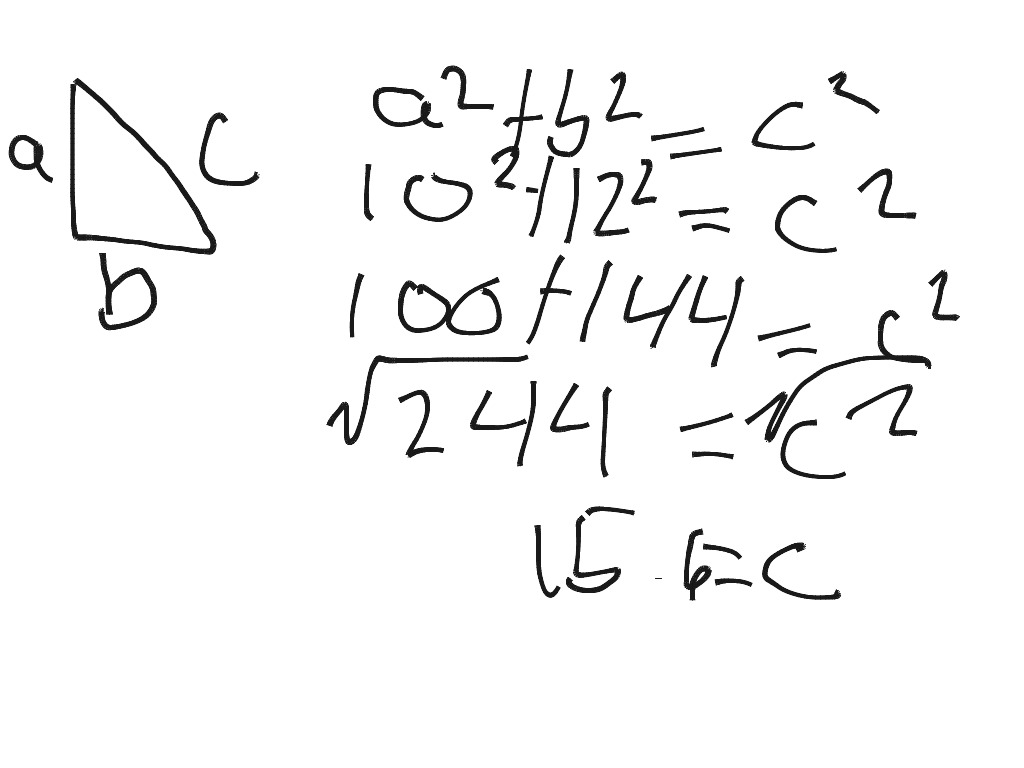 a c
b
a² + b² = c²
10² + 12² = c²
100 + 144 = c²
√244 = √c²
15.6 = c